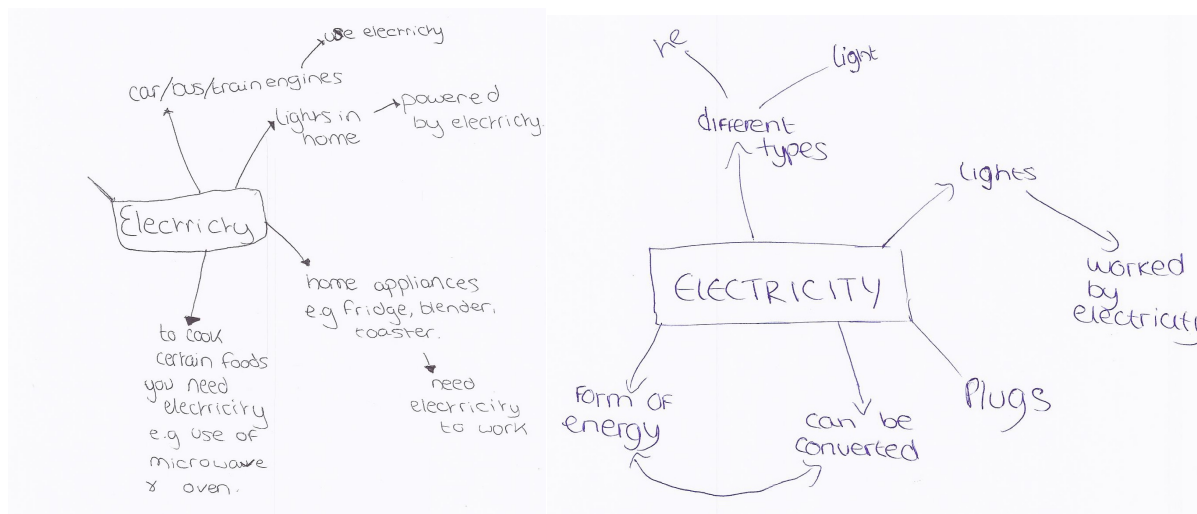 use electricity
car/bus/train engines
lights in
home
powered
by electricity.
Electricity
home appliances
e.g fridge, blender,
toaster.
need
electricity
to work
to cook
certain foods
you need
electricity
e.g use of
microwave
& oven.
light
different
types
lights
worked
by
electricity
ELECTRICITY
Plugs
form of
energy
can be
converted